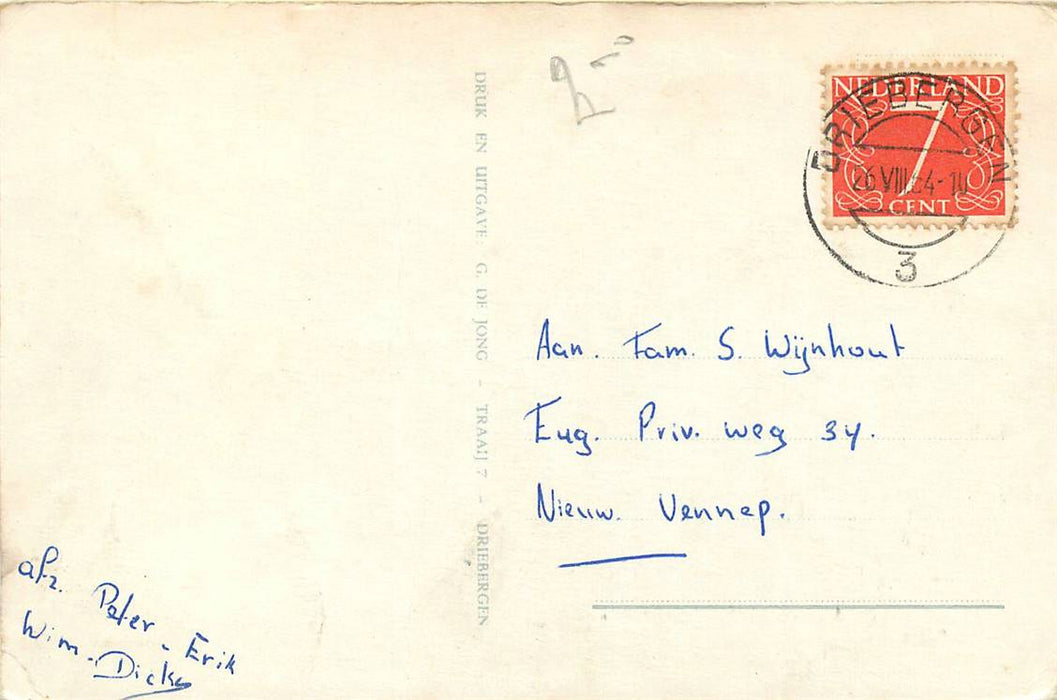 NEDERLAND
7
CENT
DRIEBERGEN
26 VIII 64-10
3
DRUK EN UITGAVE: G. DE JONG - TRAAIJ 7 - DRIEBERGEN
Aan. Fam. S. Wijnhout
Eug. Priv. weg 34.
Nieuw. Vennep.
afz. Peter - Erik
Wim - Dicky